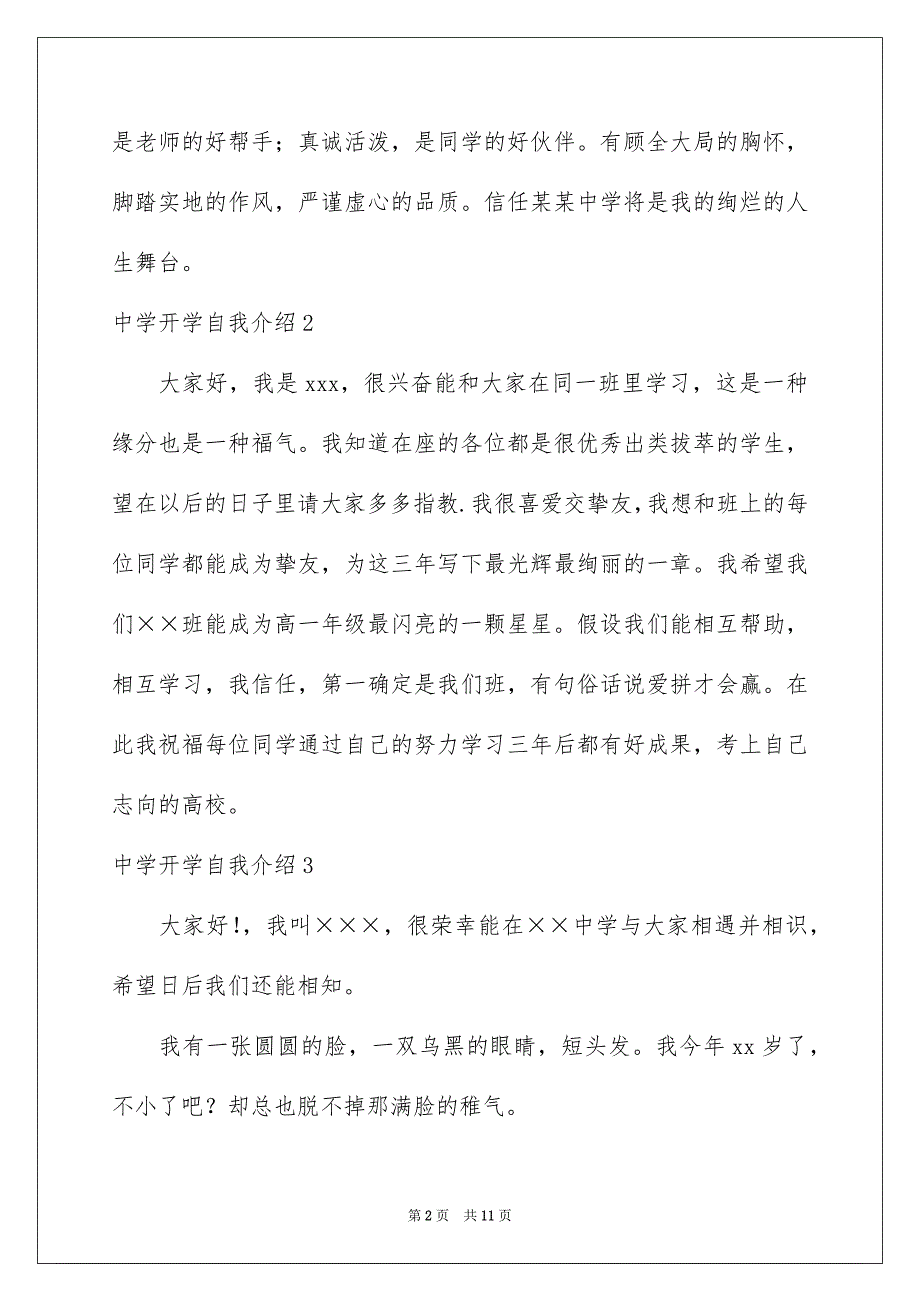 是老师的好帮手；真诚活泼，是同学的好伙伴。有顾全大局的胸怀，
脚踏实地的作风，严谨虚心的品质。信任某某中学将是我的绚烂的人
生舞台。
中学开学自我介绍2
大家好，我是 xxx，很兴奋能和大家在同一班里学习，这是一种
缘分也是一种福气。我知道在座的各位都是很优秀出类拔萃的学生，
望在以后的日子里请大家多多指教.我很喜爱交挚友，我想和班上的每
位同学都能成为挚友，为这三年写下最光辉最绚丽的一章。我希望我
们××班能成为高一年级最闪亮的一颗星星。假设我们能相互帮助，
相互学习，我信任，第一确定是我们班，有句俗话说爱拼才会赢。在
此我祝福每位同学通过自己的努力学习三年后都有好成果，考上自己
志向的高校。
中学开学自我介绍3
大家好!，我叫×××，很荣幸能在××中学与大家相遇并相识，
希望日后我们还能相知。
我有一张圆圆的脸，一双乌黑的眼睛，短头发。我今年 xx 岁了，
不小了吧？却总也脱不掉那满脸的稚气。
第 2 页 共 11 页